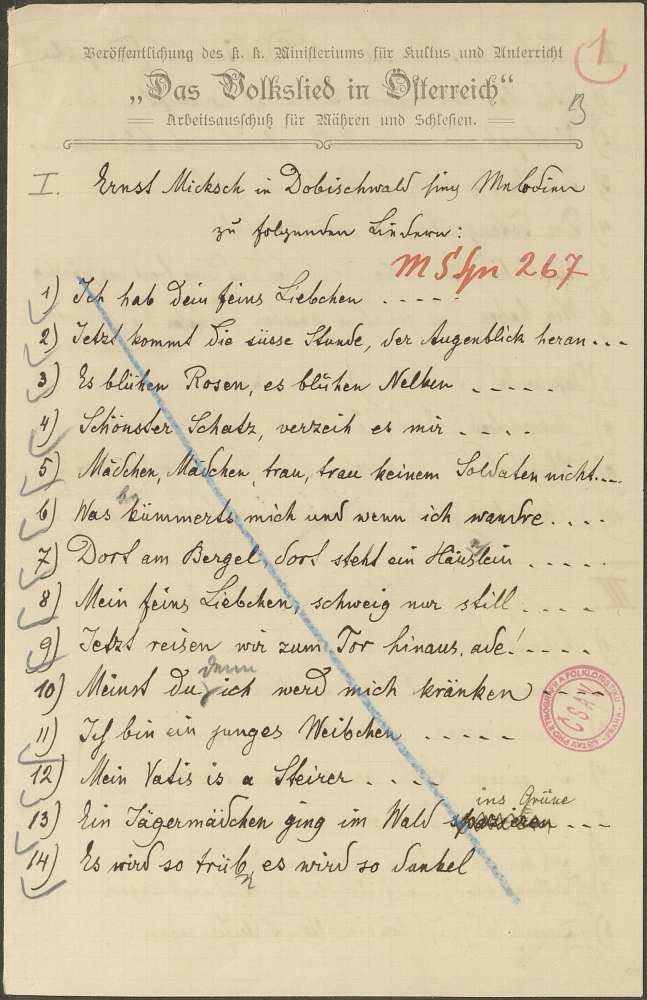 Veröffentlichung des k. k. Ministeriums für Kultus und Unterricht
1
„Das Volkslied in Österreich“
Arbeitsausschuß für Mähren und Schlesien.
I. Ernst Micksch in Dobischwald sing Melodien
zu folgenden Liedern:
267
1) Ich hab dein feins Liebchen - - - - -
2) Jetzt kommt die süsse Stunde, der Augenblick heran - - -
3) Es blühen Rosen, es blühen Nelken - - - - -
4) Schönster Schatz, verzeih es mir - - - -
5) Mädchen, Mädchen, trau, trau keinem Soldaten nicht - - -
6) Was kümmerts mich und wenn ich wandre - - - -
7) Dort am Bergel, dort steht ein Häuslein - - - - -
8) Mein feins Liebchen, schweig nur still - - - -
9) Jetzt reisen wir zum Tor hinaus, ade! - - - -
10) Meinst du denn ich werd mich kränken - - - -
11) Ich bin ein junges Weibchen - - - - -
12) Mein Vatis is a Steirer - - - -
13) Ein Jägermädchen ging im Wald ins Grüne - - -
14) Es wird so trüb, es wird so dunkel
ČSAV